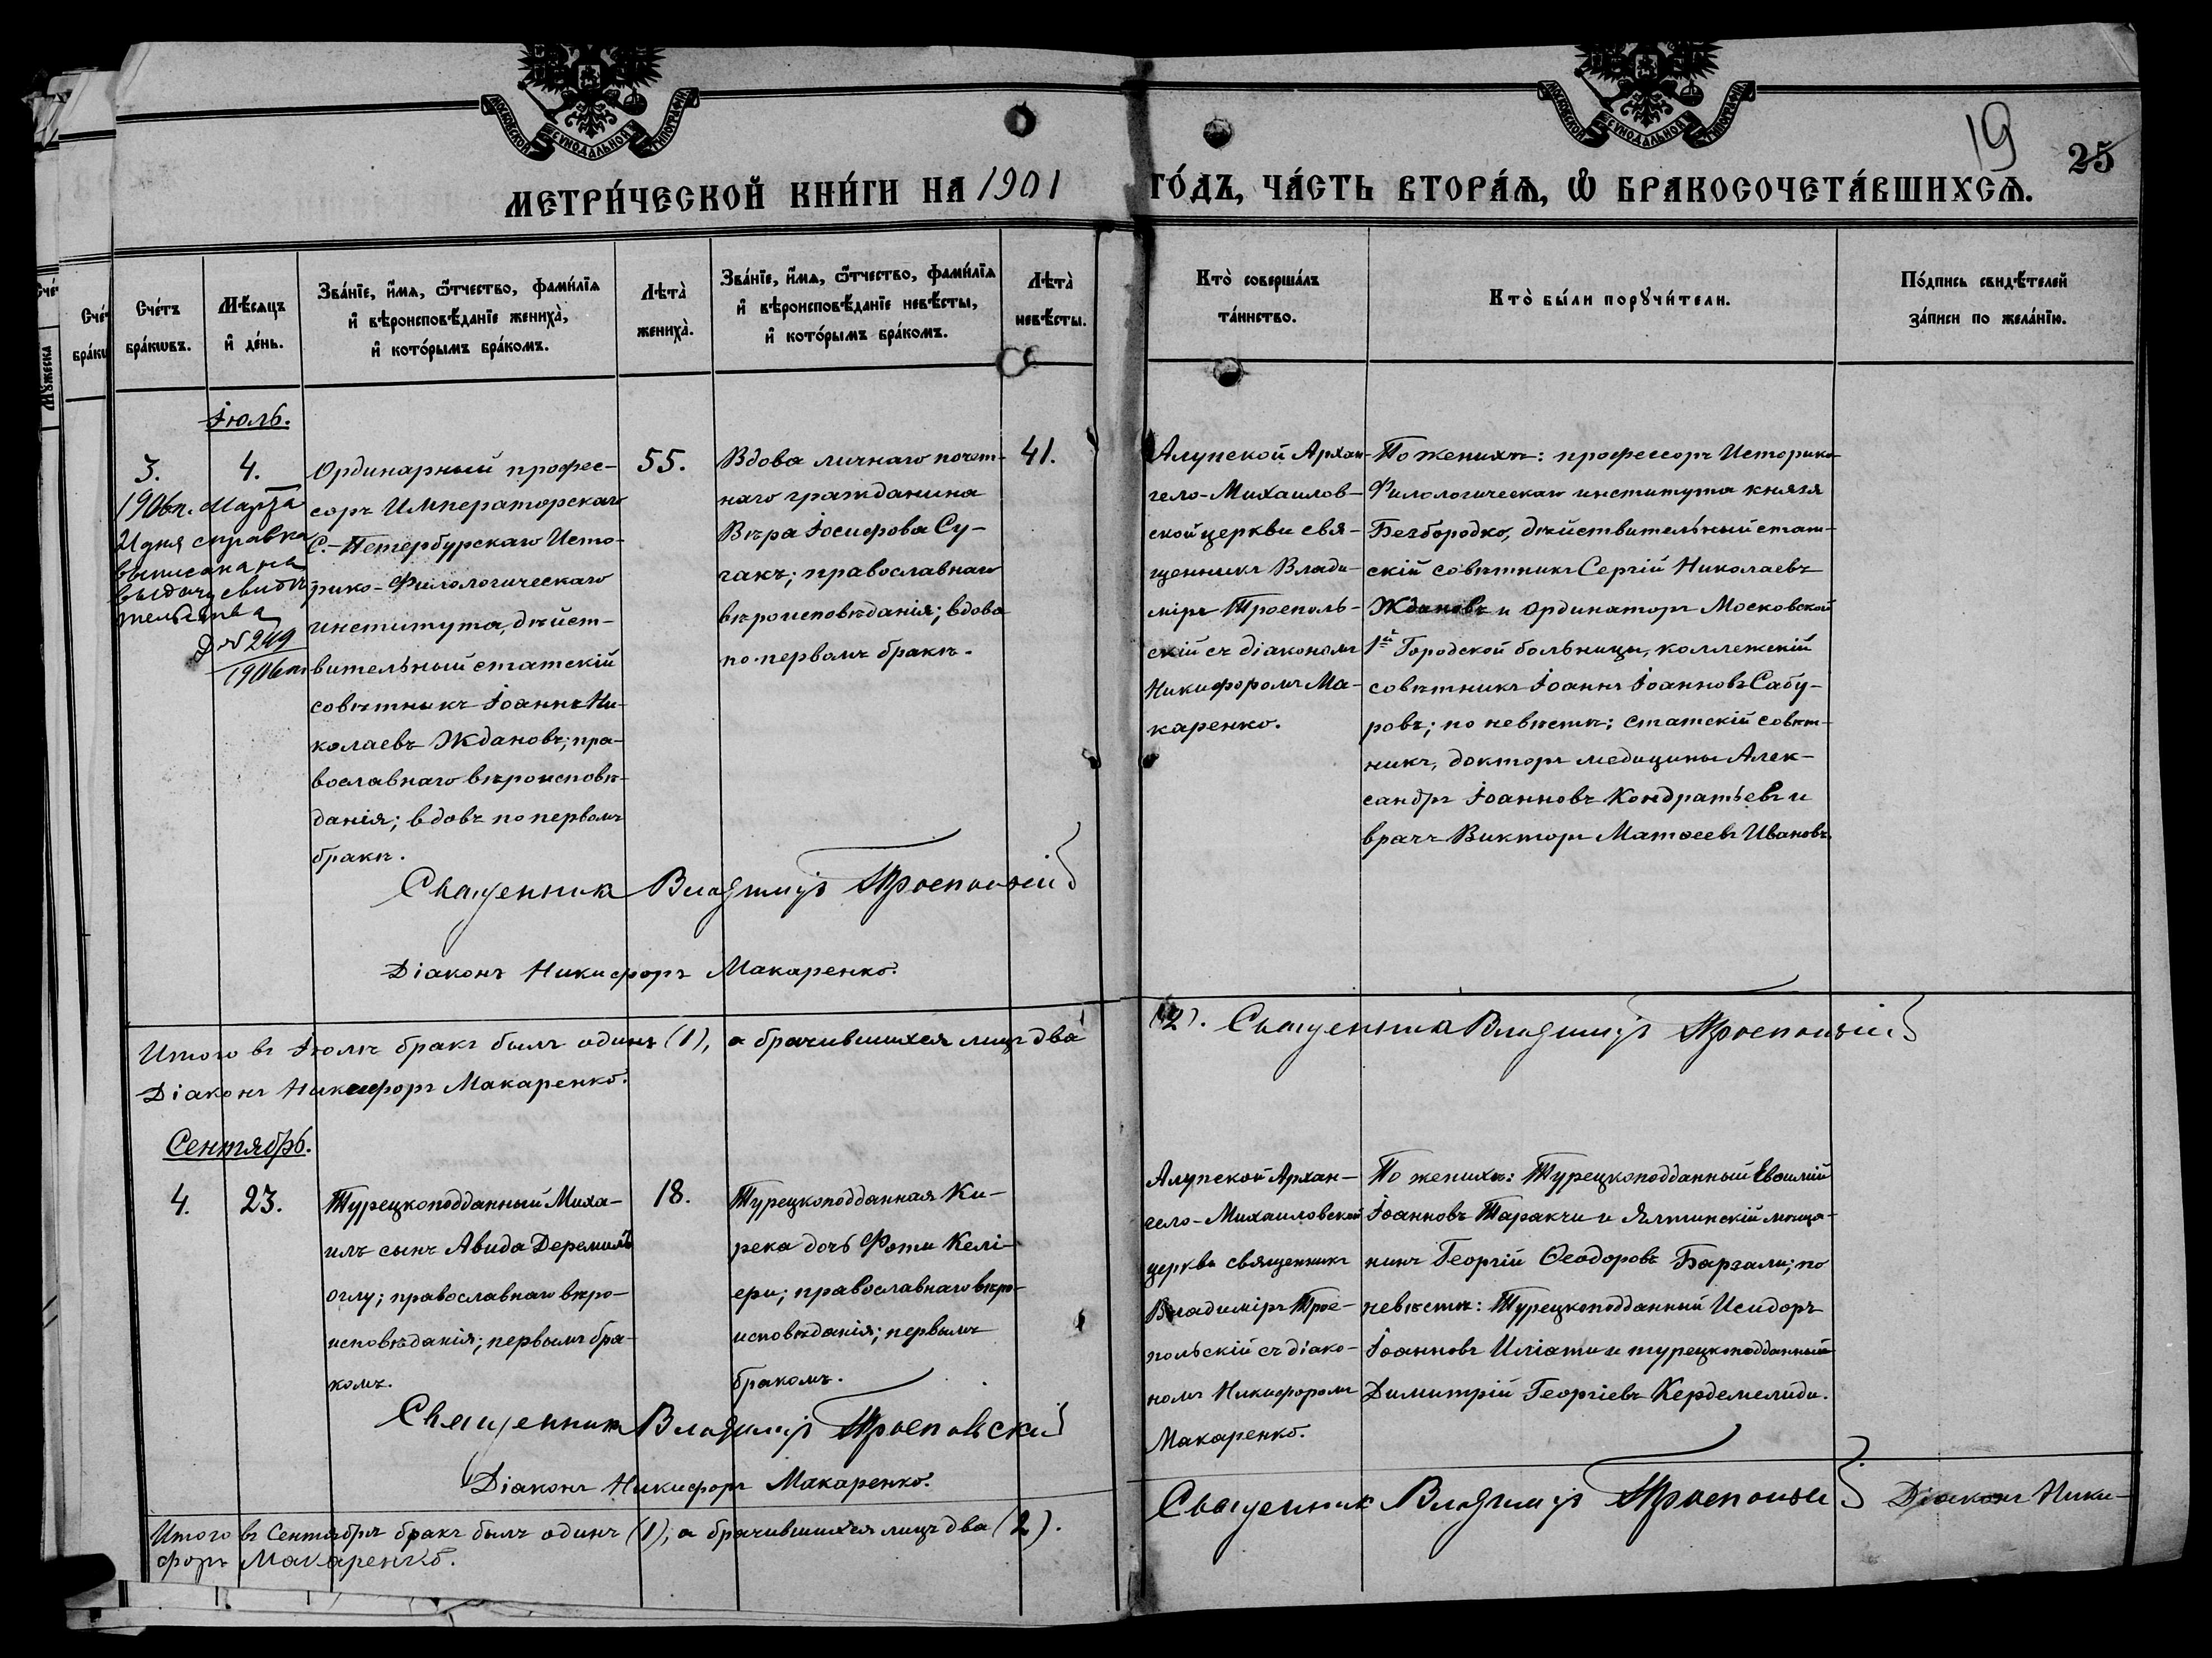 МОСКОВСКОЙ СѴНОДАЛЬНОЙ ТИПОГРАФІИ
МОСКОВСКОЙ СѴНОДАЛЬНОЙ ТИПОГРАФІИ
19
25
МЕТРИ́ЧЕСКОЙ КНИ́ГИ НА 1901
ГО́ДЪ, ЧА́СТЬ ВТОРА́Ѧ, Ѡ҆ БРАКОСОЧЕТА́ВШИХСѦ.
Сче́тъ
бра́кѡвъ.
Мѣ́сѧцъ
и҆ де́нь.
Зва́нїе, и҆́мѧ, ѻ҆́тчество, фами́лїѧ
и҆ вѣроисповѣ́данїе жениха̀,
и҆ кото́рымъ бра́комъ.
Лѣта̀
жениха̀.
Зва́нїе, и҆́мѧ, ѻ҆́тчество, фами́лїѧ
и҆ вѣроисповѣ́данїе невѣ́сты,
и҆ кото́рымъ бра́комъ.
Лѣта̀
невѣ́сты.
Кто̀ соверша́лъ
та́инство.
Кто̀ бы́ли порꙋчи́тели.
По́дпись свидѣ́телей
за́писи по жела́нїю.
Іюль.
3.
4.
1906 г. Марта
21 дня справка
выписана на
выдачу свидѣ
тельства
Д № 249
1906 г.
Ординарный профес-
соръ Императорскаго
С.-Петербурскаго Исто-
рико-Филологическаго
института, дѣйст-
вительный статскій
совѣтникъ Іоаннъ Ни-
колаевъ Ждановъ; пра-
вославнаго вѣроисповѣ-
данія; вдовъ по первомъ
бракѣ.
55.
Вдова личнаго почет-
наго гражданина
Вѣра Іосифова Су-
гакъ; православнаго
вѣроисповѣданія; вдова
по первомъ бракѣ.
41.
Алупской Архан-
гело-Михаилов-
ской церкви свя-
щенникъ Влади-
міръ Троеполь-
скій съ діакономъ
Никифоромъ Ма-
каренко.
По женихѣ: профессоръ Историко
Филологическаго института князя
Безбородко, дѣйствительный стат-
скій совѣтникъ Сергій Николаевъ
Ждановъ и ординаторъ Московской
1й Городской больницы, коллежскій
совѣтникъ Іоаннъ Іоанновъ Сабу-
ровъ; по невѣстѣ: статскій совѣт-
никъ, докторъ медицины Алек-
сандръ Іоанновъ Кондратьевъ и
врачъ Викторъ Матѳеевъ Ивановъ.
Священникъ Владиміръ Троепольскій
Діаконъ Никифоръ Макаренко.
Итого въ Іюлѣ бракъ былъ одинъ (1), а брачившихся лицъ два
(2). Священникъ Владиміръ Троепольскій
Діаконъ Никифоръ Макаренко.
Сентябрь.
4.
23.
Турецкоподданный Миха-
илъ сынъ Авида Деремилъ
оглу; православнаго вѣро-
исповѣданія; первымъ бра-
комъ.
18.
Турецкоподданная Ки-
река дочь Фоти Келі-
ери; православнаго вѣро-
исповѣданія; первымъ
бракомъ.
Алупской Архан-
гело-Михаиловской
церкви священникъ
Владиміръ Трое-
польскій съ діако-
номъ Никифоромъ
Макаренко.
По женихѣ: Турецкоподданный Евѳимій
Іоанновъ Таракчи и Ялтинскій мѣща-
нинъ Георгій Ѳеодоровъ Барзали; по
невѣстѣ: Турецкоподданный Исидоръ
Іоанновъ Иліати и турецкоподданный
Димитрій Георгіевъ Кердемелиди.
Священникъ Владиміръ Троепольскій
Діаконъ Никифоръ Макаренко.
Итого въ Сентябрѣ бракъ былъ одинъ (1), а брачившихся лицъ два (2).
Священникъ Владиміръ Троепольскій Діаконъ Ники-
форъ Макаренко.